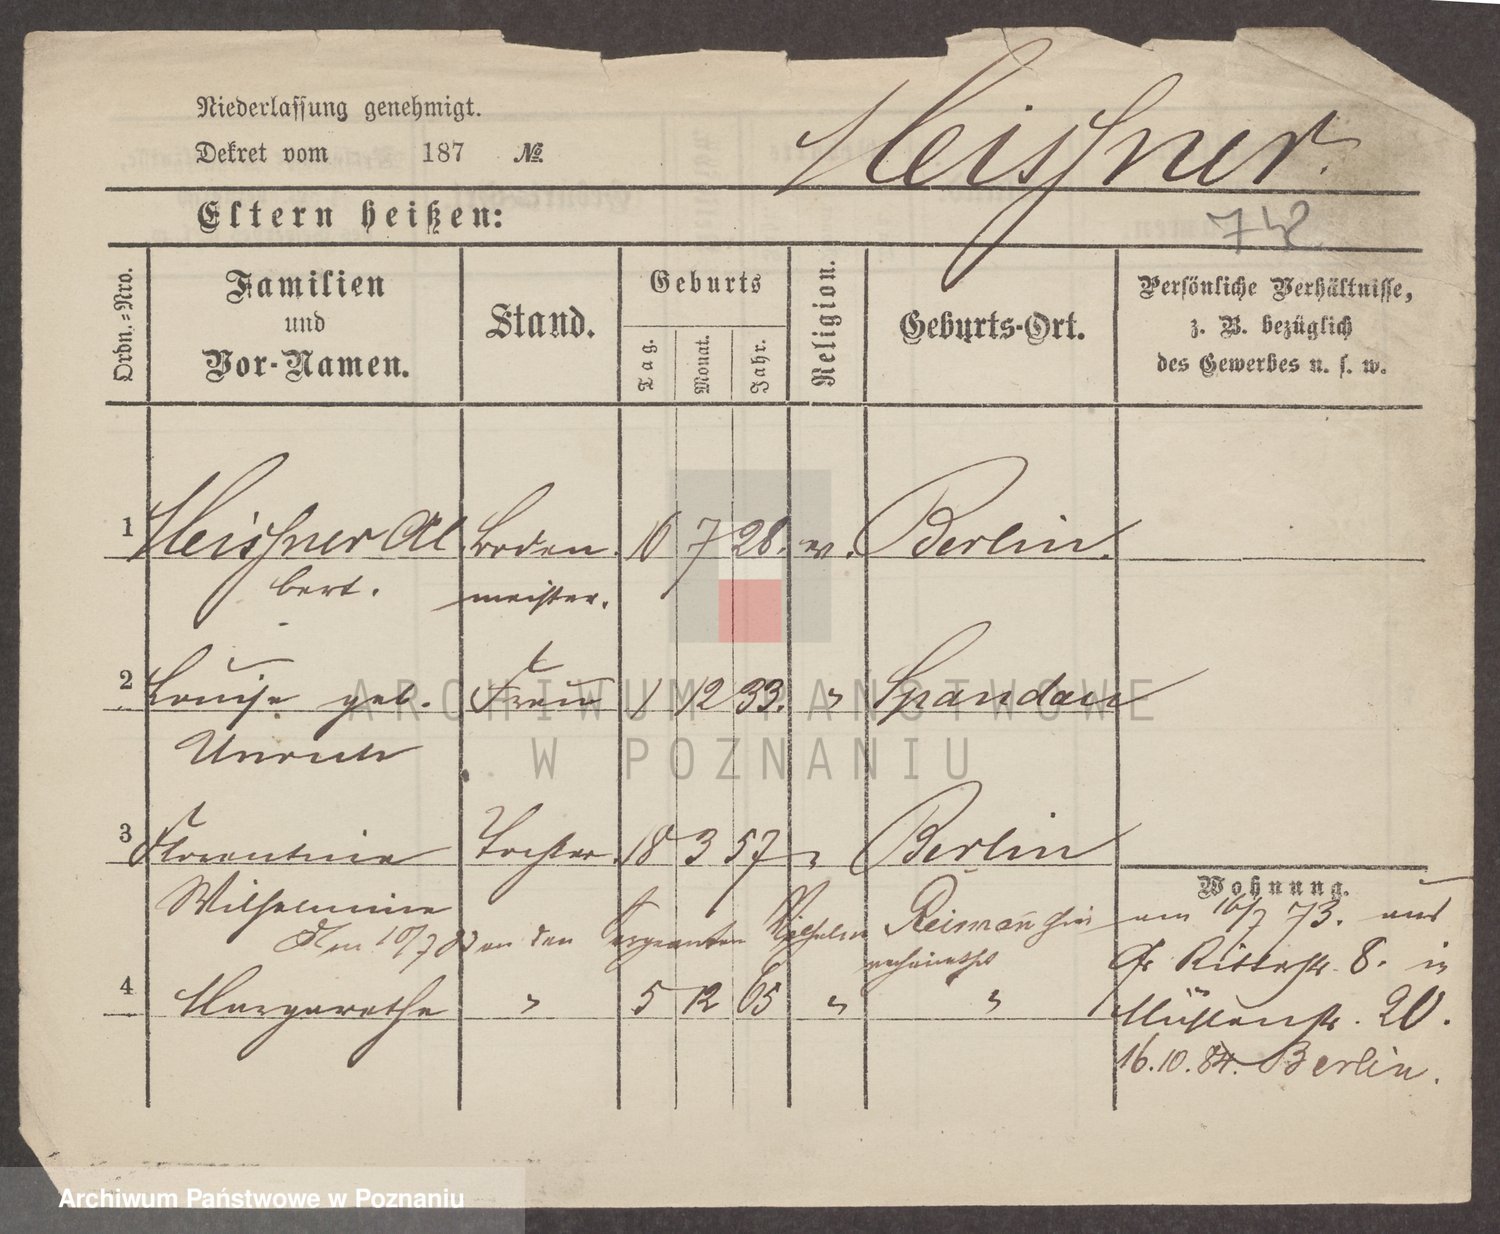 Niederlassung genehmigt.
Dekret vom 187 №
Meissner.
Eltern heißen:
742
Ordn.-Nro.
Familien
und
Vor-Namen.
Stand.
Geburts
Tag.
Monat.
Jahr.
Religion.
Geburts-Ort.
Persönliche Verhältnisse,
z. B. bezüglich
des Gewerbes u. s. w.
1 Meissner Al Boden 16 7 28. ev. Berlin.
bert. meister.
2 Louise geb. Frau 1 12 33. " Spandau
3 Florentine Tochter. 18 3 57 " Berlin
Wohnung.
Wilhelmine
Den 10/7 83 an den Sergeanten Wilhelm Reimann hier
verheirathet
am 16/7 73. aus
Gr. Ritterstr. 8. in
4 Margarethe " 5 12 65 " "
Mühlenstr. 20.
16.10.84. Berlin.
ARCHIWUM PAŃSTWOWE
W POZNANIU
Archiwum Państwowe w Poznaniu